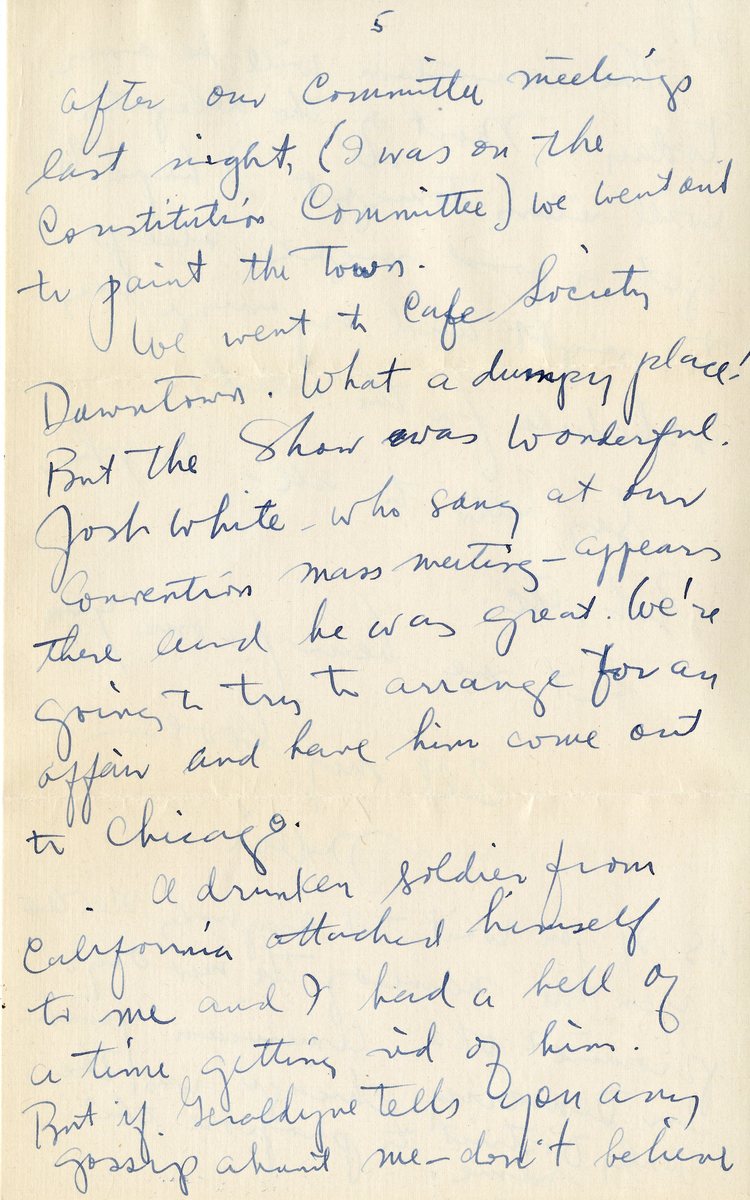 5
after our Committee meetings
last night, (I was on the
Constitution Committee) we went out
to paint the town.
We went to Cafe Society
Downtown. What a dumpy place!
But the Show was wonderful.
Josh White - who sang at our
Convention mass meeting - appears
there and he was great. We're
going to try to arrange for an
affair and have him come out
to Chicago.
A drunken soldier from
California attached himself
to me and I had a hell of
a time getting rid of him.
But if Geraldyne tells you any
gossip about me - don't believe